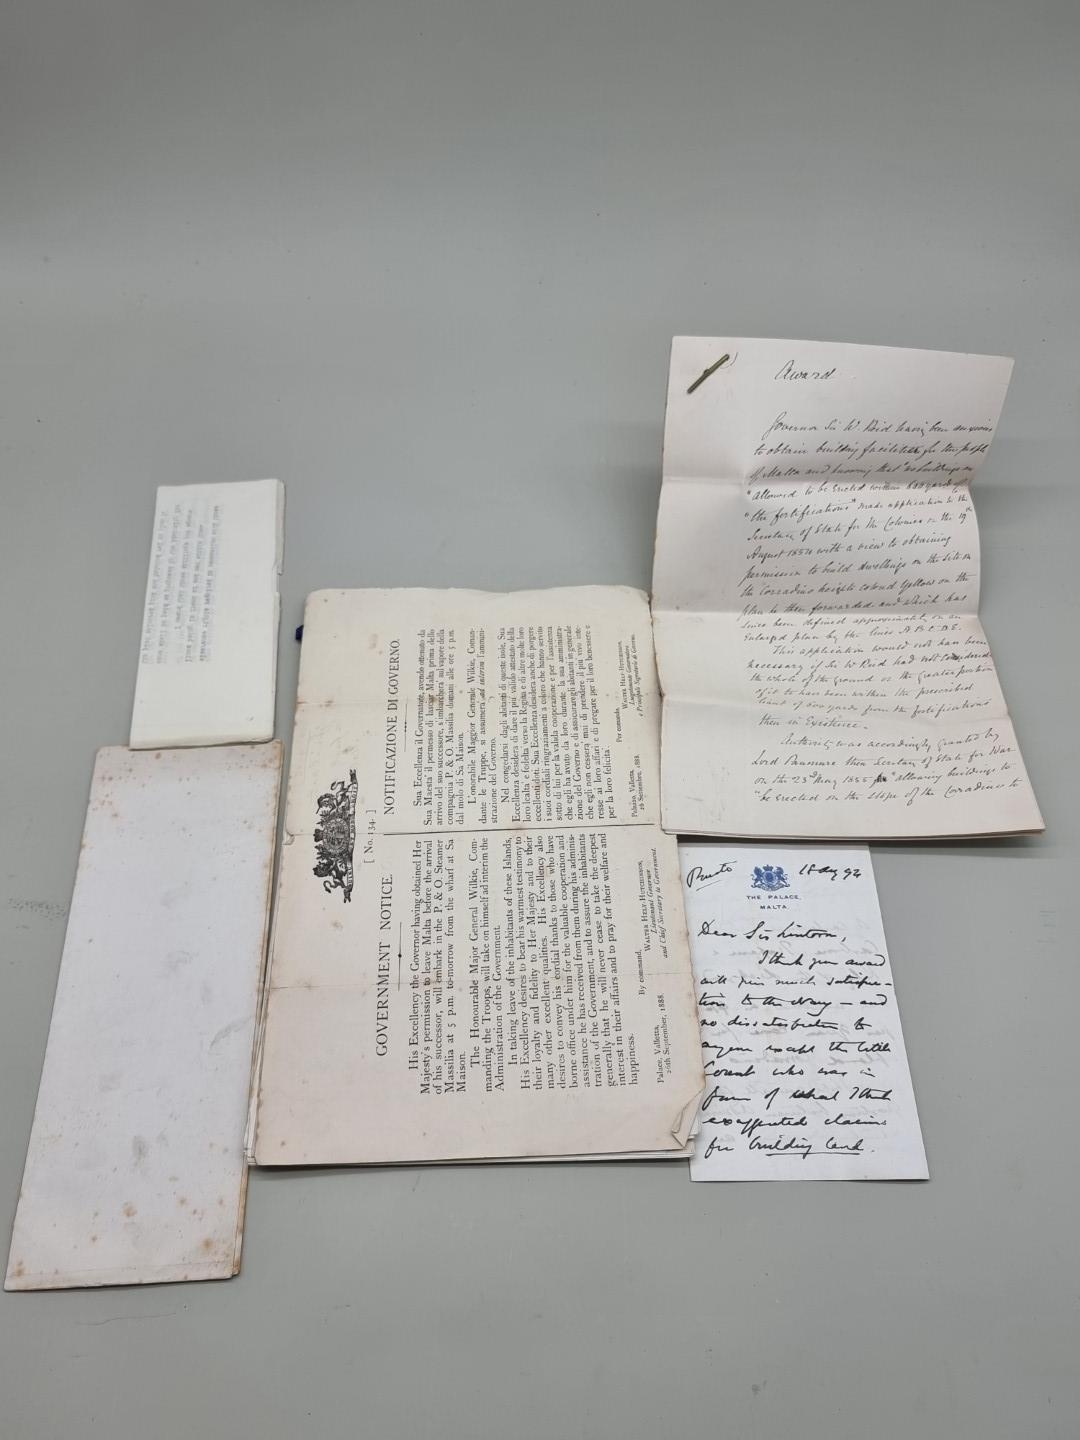 GOVERNMENT NOTICE.
[ No. 134. ]
His Excellency the Governor having obtained Her
Majesty's permission to leave Malta before the arrival
of his successor, will embark in the P. & O. Steamer
Massilia at 5 p.m. to-morrow from the wharf at Sa
Maison.
The Honourable Major General Wilkie, Com-
manding the Troops, will take on himself ad interim the
Administration of the Government.
In taking leave of the inhabitants of these Islands,
His Excellency desires to bear his warmest testimony to
their loyalty and fidelity to Her Majesty and to their
many other excellent qualities. His Excellency also
desires to convey his cordial thanks to those who have
borne office under him for the valuable cooperation and
assistance he has received from them during his adminis-
tration of the Government, and to assure the inhabitants
generally that he will never cease to take the deepest
interest in their affairs and to pray for their welfare and
happiness.
By command,
WALTER HELY-HUTCHINSON,
Lieutenant Governor
and Chief Secretary to Government.
Palace, Valletta,
26th September, 1888.
NOTIFICAZIONE DI GOVERNO.
Sua Eccellenza il Governatore, avendo ottenuto da
Sua Maesta' il permesso di lasciar Malta prima dello
arrivo del suo successore, s'imbarchera' sul vapore della
compagnia P. & O. Massilia domani alle ore 5 p.m.
dal molo di Sa Maison.
L'onorabile Maggior Generale Wilkie, Coman-
dante le Truppe, si assumera' ad interim l'ammini-
strazione del Governo.
Nel congedarsi dagli abitanti di queste isole, Sua
Eccellenza desidera di dare il piu' valido attestato della
loro lealta' e fedelta verso la Regina e di altre molte loro
eccellenti doti. Sua Eccellenza desidera anche di porgere
i suoi cordiali ringraziamenti a coloro che hanno servito
sotto di lui per la valida cooperazione e per l'assistenza
che egli ha avuto da loro durante la sua amministra-
zione del Governo e di assicurare gli abitanti in generale
che egli non cesserà mai di prendere il piu' vivo inte-
resse ai loro affari e di pregare per il loro benessere e
per la loro felicita'.
Per comando,
WALTER HELY-HUTCHINSON,
Luogotenente Governatore
e Principale Segretario di Governo.
Palazzo, Valletta,
26 Settembre, 1888.
Award
Governor Sir W. Reid having been anxious
to obtain building facilities for the people
of Malta and knowing that "no buildings are
"allowed to be erected within 600 yards of
"the fortifications" made application to the
Secretary of State for the Colonies on the 19th
August 1854 with a view to obtaining
permission to build dwellings on the site on
the Corradino heights colored Yellow on the
plan to then forwarded and which has
since been defined approximately on an
Enlarged plan by the lines A.B.C.D.E.
This application would not have been
necessary if Sir W Reid had not considered
the whole of the ground or the greater portion
of it to have been within the prescribed
limit of 600 yards from the fortifications
then in Existence.
Authority was accordingly granted by
Lord Panmure then Secretary of State for War
on the 23rd May 1855 for "allowing buildings to
"be Erected on the slope of the Corradino to
Private
THE PALACE,
MALTA.
Dear Sir Lintorn,
I think your award
will give much satisfac-
tion to the Navy – and
no dissatisfaction to
anyone except the little
Count who was in
favor of what I think
exaggerated claims
for building land.